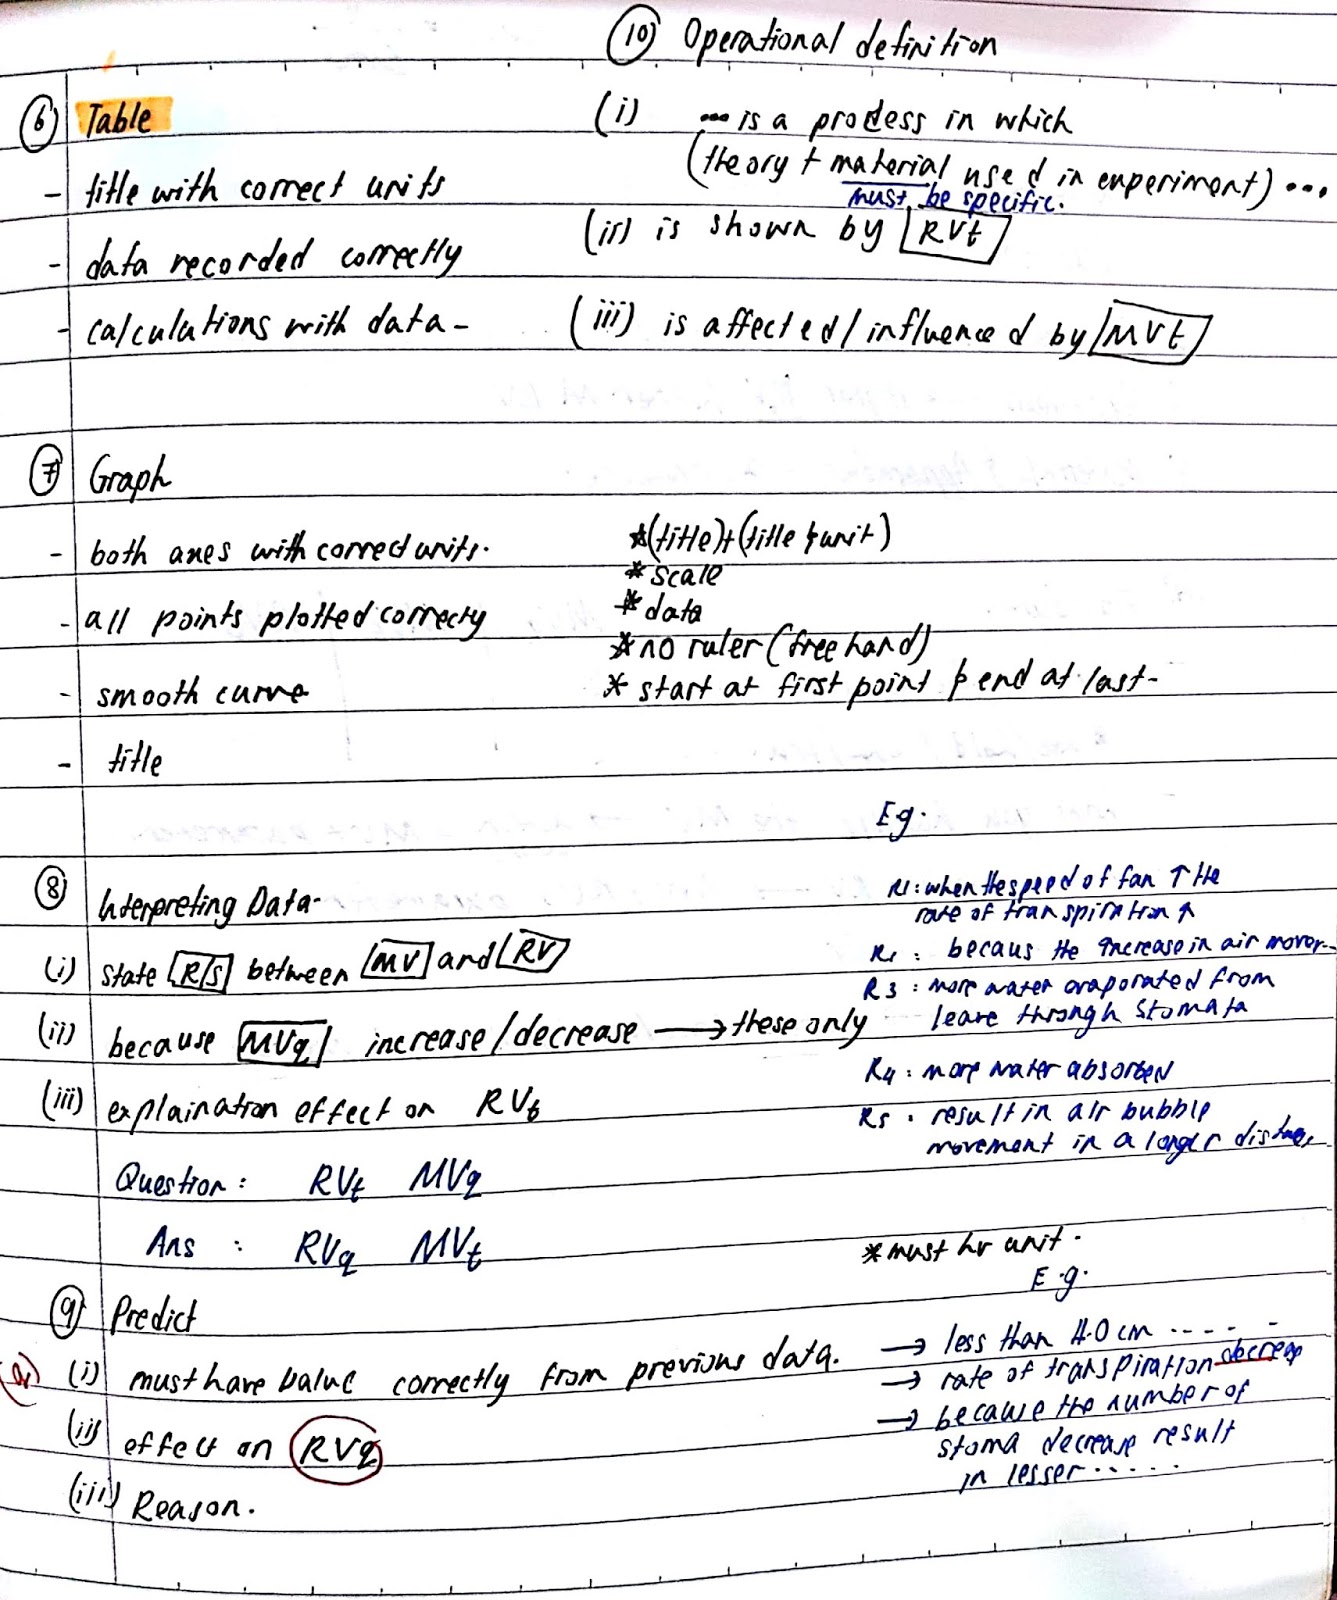 (10) Operational definition
(6) Table
- title with correct units
- data recorded correctly
- calculations with data -
(i) ... is a prodess in which
(theory + material used in experiment) ...
must be specific.
(ii) is shown by RVt
(iii) is affected/influenced by MVt
(7) Graph
- both axes with correct units.
- all points plotted correcty
- smooth curve
- title
*(title)+(title & unit)
* scale
* data
* no ruler (free hand)
* start at first point & end at last-
(8) Interpreting Data-
(i) state R/S between MV and RV
(ii) because MVq increase/decrease → these only
(iii) explaination effect on RVt
Question : RVt MVq
Ans : RVq MVt
Eg.
R1: when the speed of fan ↑ the
rate of transpiration ↑
R2 : becaus the increase in air mover--
R3 : more water evaporated from
leave through stomata
R4 : more water absorbed
R5 : result in air bubble
movement in a longer
(9) Predict
(i) must have value correctly from previous data.
(ii) effect on RVq
(iii) Reason.
* must hv unit.
E.g.
→ less than 4.0 cm .....
→ rate of transpiration decrease
→ because the number of
stoma decrease result
in lesser .....